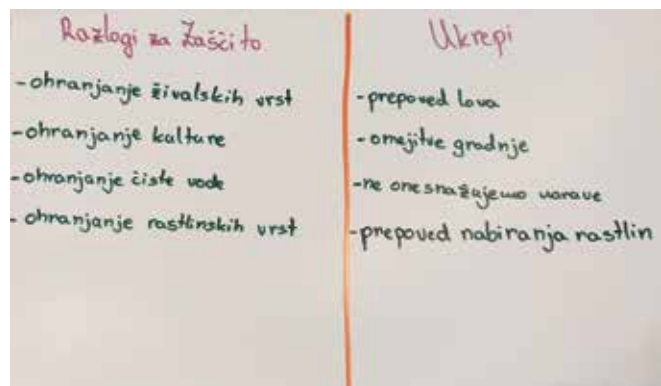 Razlogi za Zaščito
-ohranjanje živalskih vrst
-ohranjanje kulture
-ohranjanje čiste vode
- ohranjanje rastlinskih vrst
Ukrepi
-prepoved lova
-omejitve gradnje
-ne onesnažujemo narave
-prepoved nabiranja rastlin